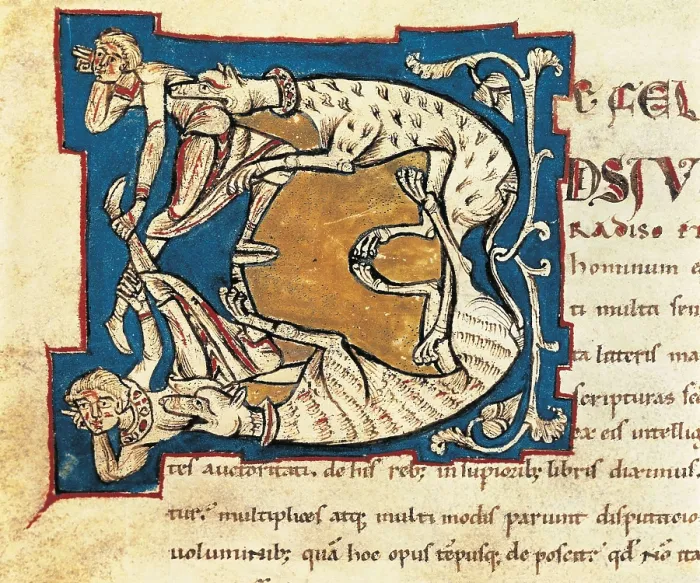 E CEL
DSIV
RADISO ET
hominum e
ti multa
ta lateris ma
scripturas
ex eis intellig
tes auctoritati. de his reb; in superiorib; libris diximus.
tur. multiplices atq; multi modis pariunt disputatio
voluminib; quā hoc opus tēpusq; de poscit. qd' nō ita